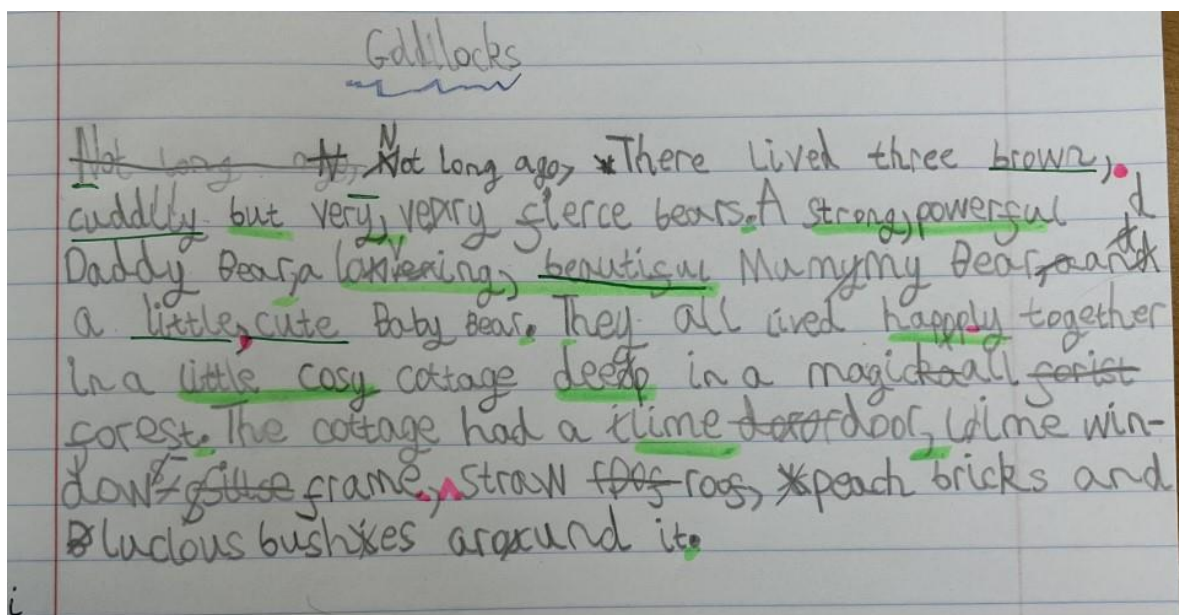 Goldilocks
Not long ago, N Not long ago, There lived three brown,
cuddlly but very, very fierce bears. A strong, powerful
Daddy Bear, a lovering, beautiful Mumymy Bear, and
a little, cute Baby Bear. They all lived happply together
in a little cosy cottage deep in a magickall forist
forest. The cottage had a lime door, lime win-
dow frame, straw roof, peach bricks and
lucious bushes around it.